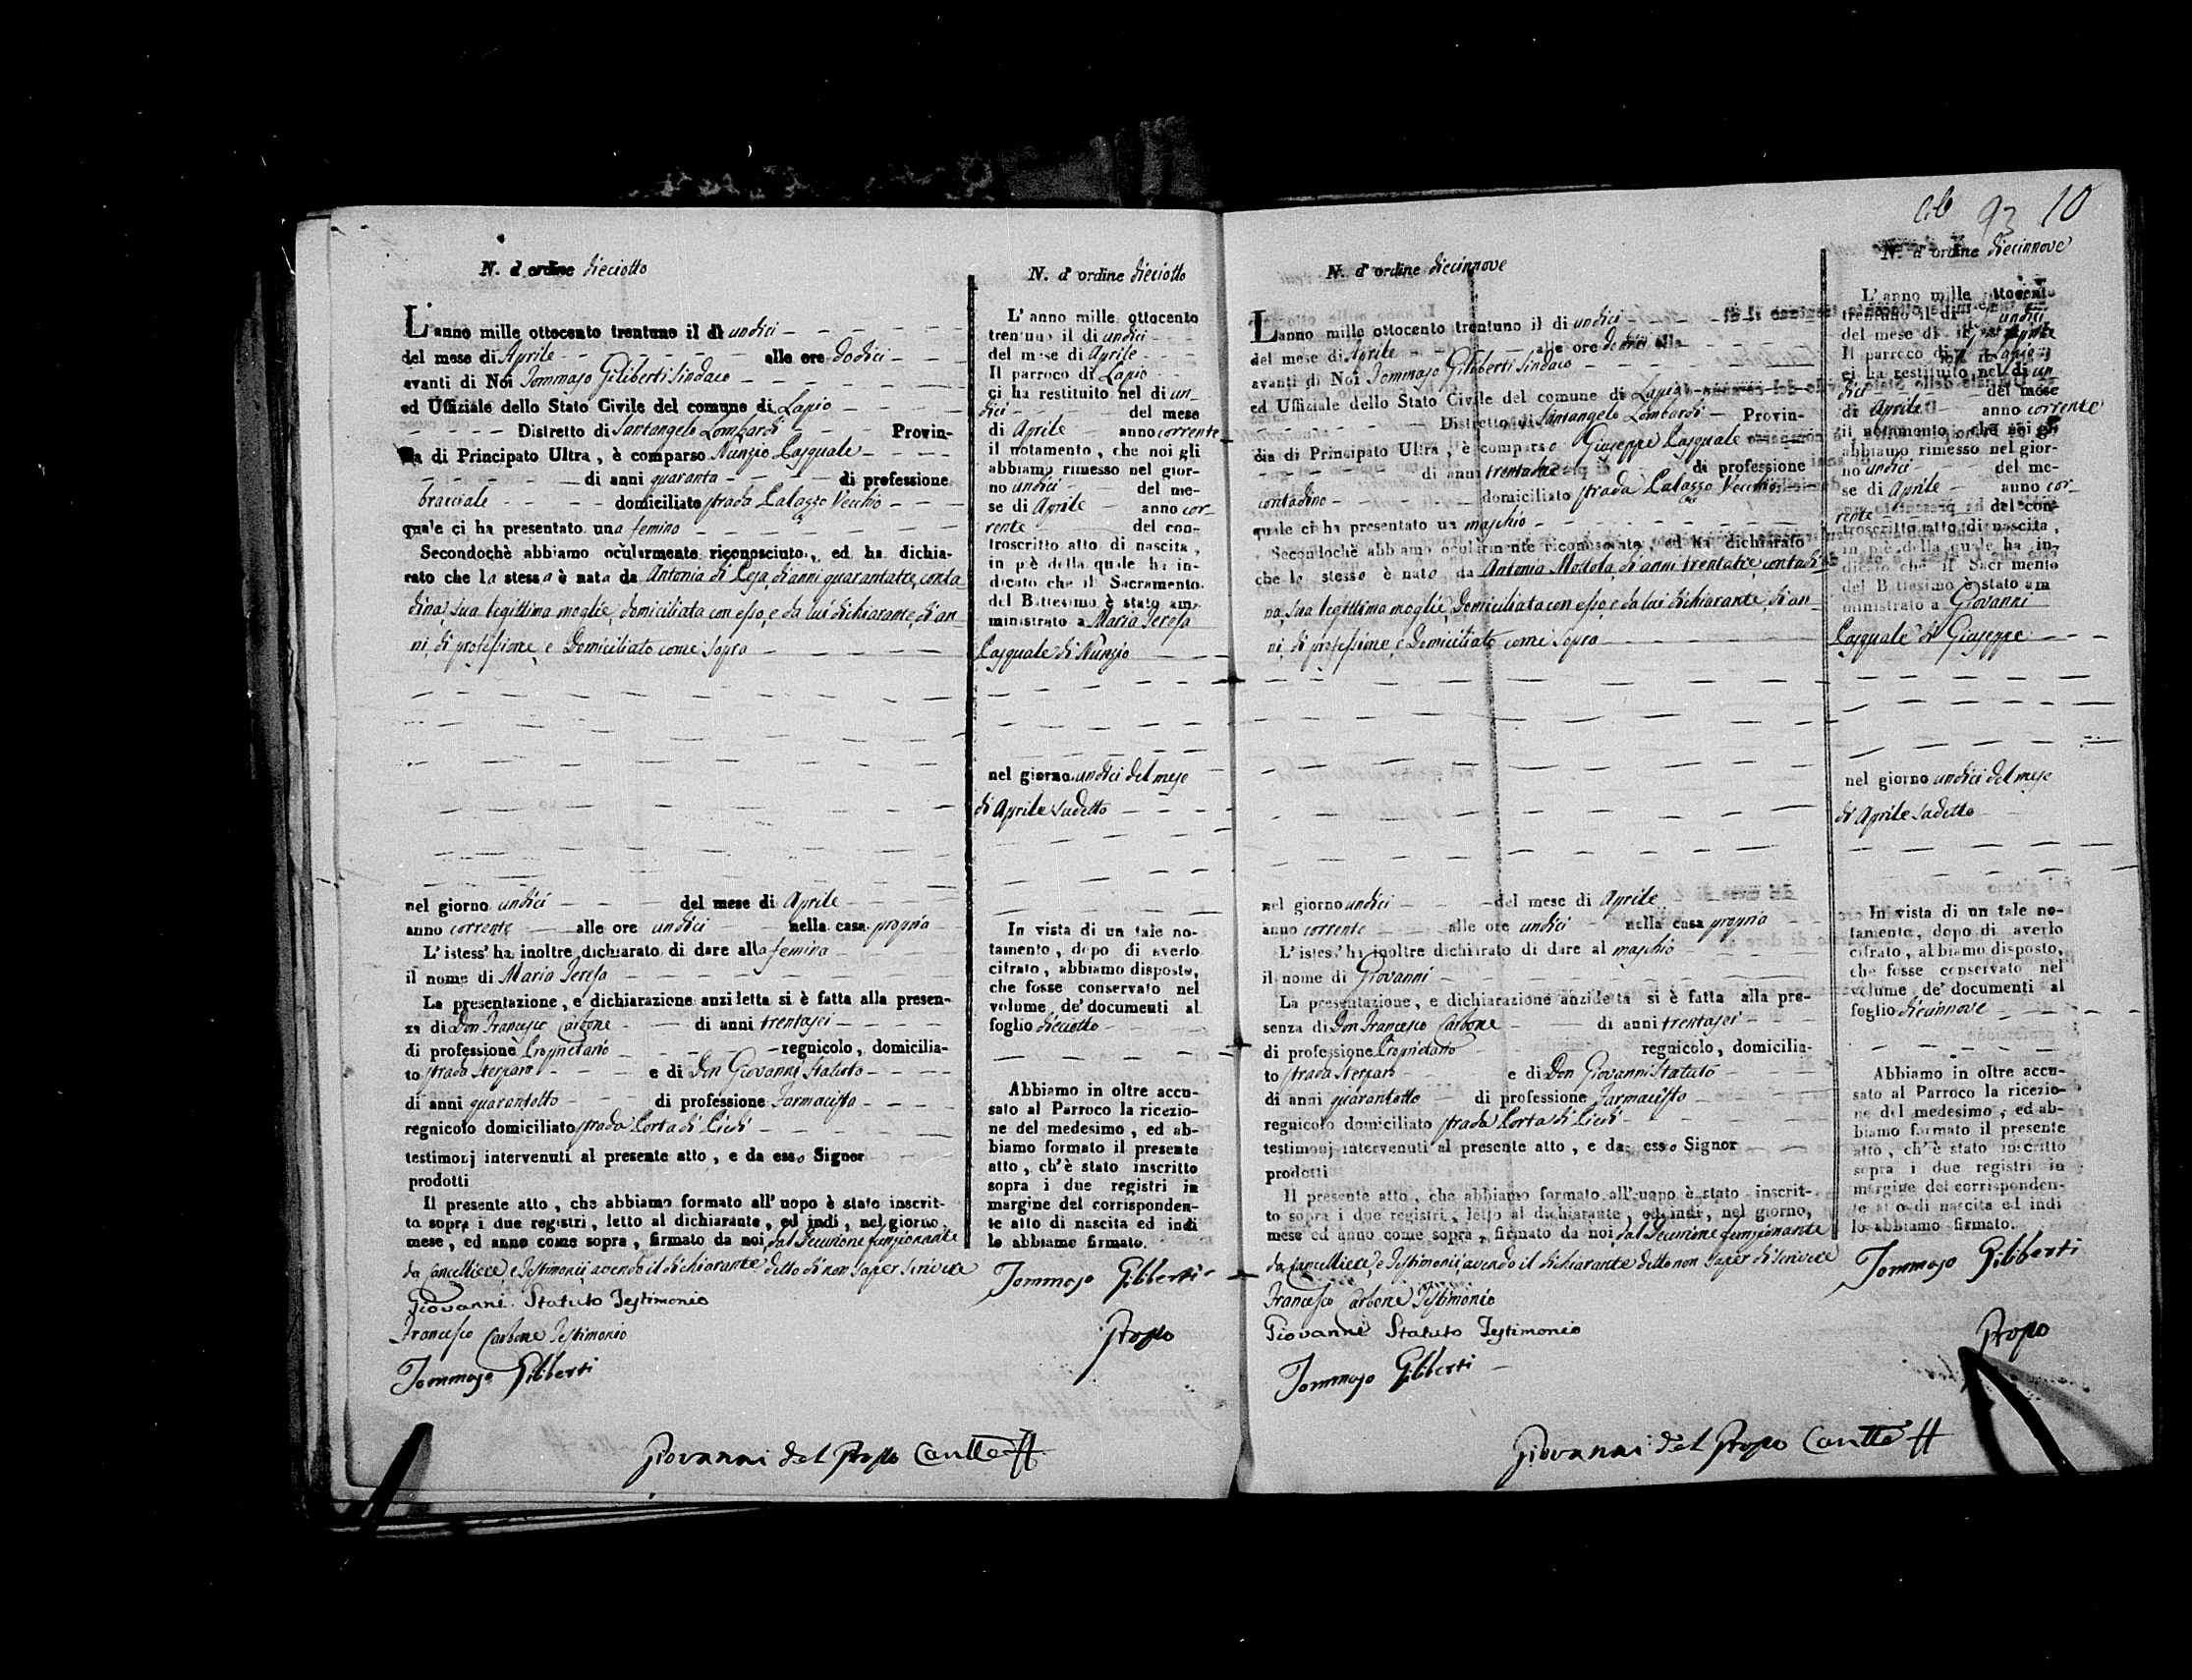 N. d'ordine dieciotto
L'anno mille ottocento trentuno il dì undici
del mese di Aprile alle ore dodici
avanti di Noi Tommaso Giliberti Sindaco
ed Uffiziale dello Stato Civile del comune di Lapio
Distretto di Santangelo Lombardi Provin-
di Principato Ultra, è comparso Nunzio Pasquale
di anni quaranta di professione
bracciale domiciliato strada Palazzo Vecchio
quale ci ha presentato una femina
Secondochè abbiamo ocularmente riconosciuto, ed ha dichia-
rato che la stessa è nata da Antonia di Pesa, di anni quarantatre, conta
dina, sua legittima moglie, domiciliata con esso, e da lui dichiarante, di an-
ni, di professione, e Domiciliato come sopra
nel giorno undici del mese di Aprile
anno corrente alle ore undici nella casa propria
L'istess' ha inoltre dichiarato di dare alla femina
il nome di Maria Teresa
La presentazione, e dichiarazione anzidetta si è fatta alla presen-
za di Don Francesco Carbone di anni trentasei
di professione Proprietario regnicolo, domicilia-
to strada Sterparo e di Don Giovanni Statuto
di anni quarantotto di professione Farmacista
regnicolo domiciliato strada Porta di Piedi
testimonj intervenuti al presente atto, e da esso Signor
prodotti
Il presente atto, che abbiamo formato all'uopo è stato inscrit-
to sopra i due registri, letto al dichiarante, ed indi, nel giorno,
mese, ed anno come sopra, firmato da noi, dal Decurione funzionante
da Cancelliere, e Testimonii, avendo il dichiarante detto di non saper scrivere
Giovanni Statuto Testimonio
Francesco Carbone Testimonio
Tommaso Giliberti
Giovanni del Propo
N. d'ordine dieciotto
L'anno mille ottocento
trentuno il dì undici
del mese di Aprile
Il parroco di Lapio
ci ha restituito nel dì un-
dici del mese
di Aprile anno corrente
il notamento, che noi gli
abbiamo rimesso nel gior-
no undici del me-
se di Aprile anno cor-
rente del con-
troscritto atto di nascita,
in piè della quale ha in-
dicato che il Sacramento
del Battesimo è stato am-
ministrato a Maria Teresa
Pasquale di Nunzio
nel giorno undici del mese
di Aprile sudetto
In vista di un tale no-
tamento, dopo di averlo
cifrato, abbiamo disposto,
che fosse conservato nel
volume de' documenti al
foglio dieciotto
Abbiamo in oltre accu-
sato al Parroco la ricezio-
ne del medesimo, ed ab-
biamo formato il presente
atto, ch'è stato inscritto
sopra i due registri in
margine del corrisponden-
te atto di nascita ed indi
lo abbiamo firmato.
Tommaso Giliberti
Propo
93 10
N. d'ordine diecinnove
L'anno mille ottocento trentuno il dì undici
del mese di Aprile alle ore dodici
avanti di Noi Tommaso Giliberti Sindaco
ed Uffiziale dello Stato Civile del comune di Lapio
Distretto di Santangelo Lombardi Provin-
cia di Principato Ultra, è comparso Giuseppe Pasquale
di anni di professione
contadino domiciliato strada Palazzo Vecchio
quale ci ha presentato un maschio
Secondochè abbiamo ocularmente riconosciuto, ed ha dichiarato
che lo stesso è nato da Antonia Mottola, di anni trentatre, contadi
na, sua legittima moglie, Domiciliata con esso, e da lui dichiarante, di an-
ni, di professione, e Domiciliato come sopra
nel giorno undici del mese di Aprile
anno corrente alle ore undici nella casa propria
L'istess' ha inoltre dichiarato di dare al maschio
il nome di Giovanni
La presentazione, e dichiarazione anzidetta si è fatta alla pre-
senza di Don Francesco Carbone di anni trentasei
di professione Proprietario regnicolo, domicilia-
to strada Sterparo e di Don Giovanni Statuto
di anni quarantotto di professione Farmacista
regnicolo domiciliato strada Porta di Piedi
testimonj intervenuti al presente atto, e da esso Signor
prodotti
Il presente atto, che abbiamo formato all'uopo è stato inscrit-
to sopra i due registri, letto al dichiarante, ed indi, nel giorno,
mese ed anno come sopra, firmato da noi, dal Decurione funzionante
da Cancelliere, e Testimonii, avendo il dichiarante detto non saper di scrivere
Francesco Carbone Testimonio
Giovanni Statuto Testimonio
Tommaso Giliberti
Giovanni del Propo
N. d'ordine diecinnove
L'anno mille ottocento
trentuno il dì undici
del mese di Aprile
Il parroco di Lapio
ci ha restituito nel dì un
dici del mese
di Aprile anno corrente
il notamento, che noi gli
abbiamo rimesso nel gior-
no undici del me-
se di Aprile anno cor-
rente del con-
troscritto atto di nascita,
in piè della quale ha in-
dicato che il Sacramento
del Battesimo è stato am
ministrato a Giovanni
Pasquale di Giuseppe
nel giorno undici del mese
di Aprile sudetto
In vista di un tale no-
tamento, dopo di averlo
cifrato, abbiamo disposto,
che fosse conservato nel
volume de' documenti al
foglio diecinnove
Abbiamo in oltre accu-
sato al Parroco la ricezio-
ne del medesimo, ed ab-
biamo formato il presente
atto, ch'è stato inscritto
sopra i due registri in
margine del corrisponden-
te atto di nascita ed indi
lo abbiamo firmato.
Tommaso Giliberti
Propo